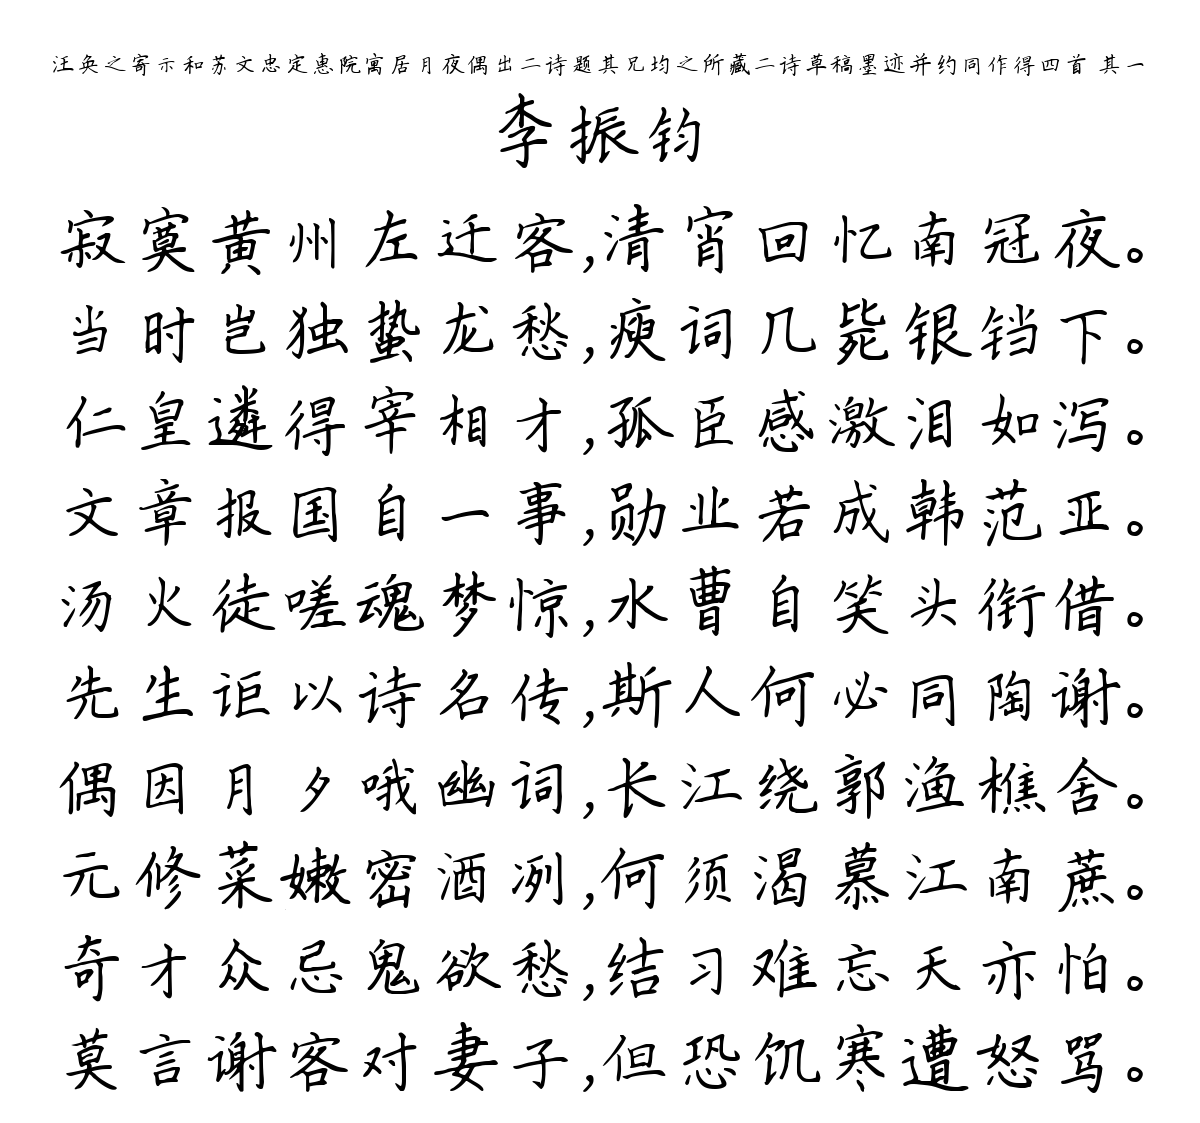 汪奂之寄示和苏文忠定惠院寓居月夜偶出二诗题其兄均之所藏二诗草稿墨迹并约同作得四首 其一
李振钧
寂寞黄州左迁客,清宵回忆南冠夜。
当时岂独蛰龙愁,瘐词几毙银铛下。
仁皇遴得宰相才,孤臣感激泪如泻。
文章报国自一事,勋业若成韩范亚。
汤火徒嗟魂梦惊,水曹自笑头衔借。
先生讵以诗名传,斯人何必同陶谢。
偶因月夕哦幽词,长江绕郭渔樵舍。
元修菜嫩密酒冽,何须渴慕江南蔗。
奇才众忌鬼欲愁,结习难忘天亦怕。
莫言谢客对妻子,但恐饥寒遭怒骂。